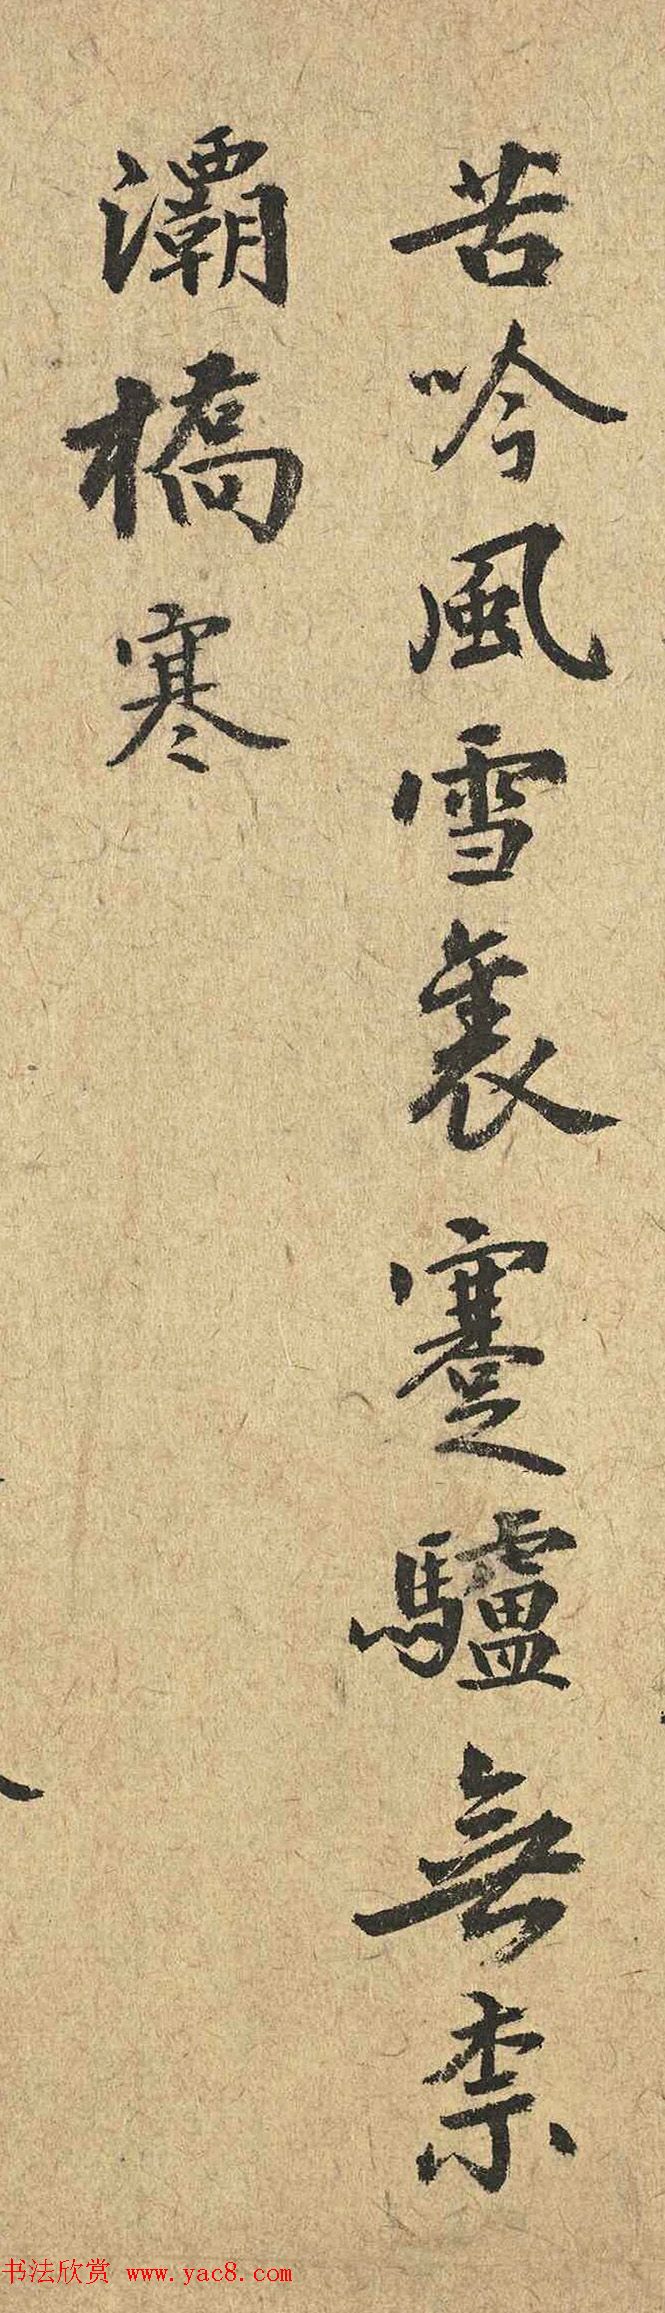 苦吟風雪裏蹇驢無柰
灞橋寒
书法欣赏 www.yac8.com